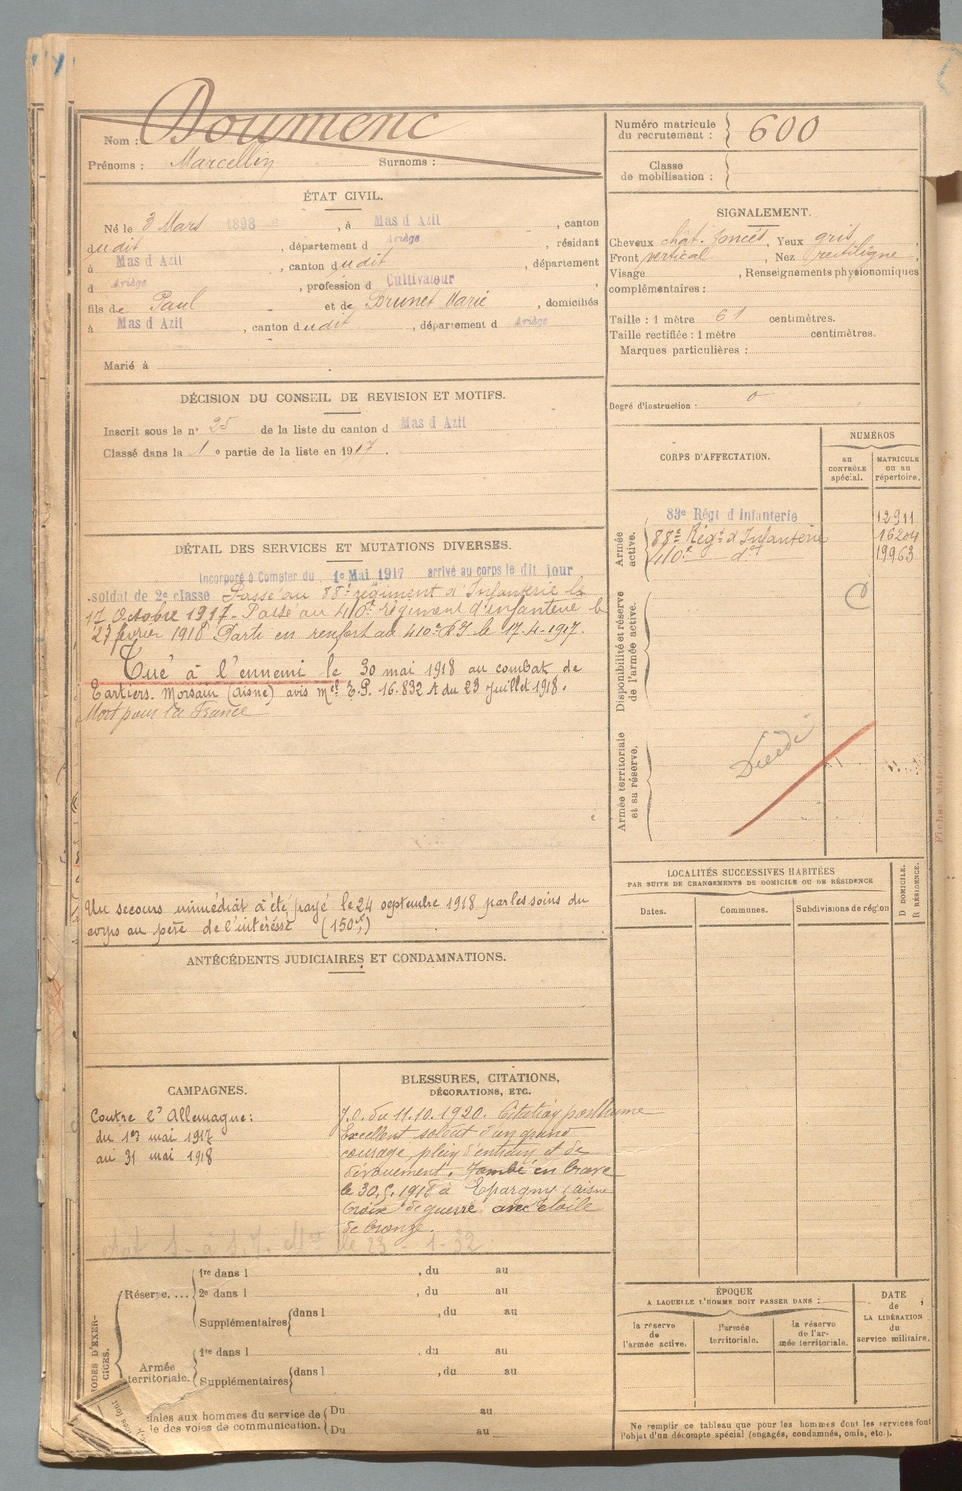 Nom : Doumenc
Prénoms : Marcellin Surnoms :
Numéro matricule du recrutement : 600
Classe de mobilisation :
ÉTAT CIVIL.
Né le 3 Mars 1898, à Mas d Azil, canton
dudit, département d Ariège, résidant
à Mas d Azil, canton dudit, département
d Ariège, profession d Cultivateur
fils de Paul et de Brunet Marie, domiciliés
à Mas d Azil, canton dudit, département d Ariège
Marié à
SIGNALEMENT.
Cheveux chât. foncés, Yeux gris,
Front vertical, Nez rectiligne,
Visage, Renseignements physionomiques
complémentaires :
Taille : 1 mètre 61 centimètres.
Taille rectifiée : 1 mètre centimètres.
Marques particulières :
Degré d'instruction : 0
DÉCISION DU CONSEIL DE REVISION ET MOTIFS.
Inscrit sous le n° 25 de la liste du canton d Mas d Azil
Classé dans la 1e partie de la liste en 1917.
CORPS D'AFFECTATION.
NUMÉROS
au CONTRÔLE spécial.
MATRICULE ou au répertoire.
Armée active.
83e Régt d Infanterie 12911
88e Régt d'Infanterie 16204
410e dot 19963
Disponibilité et réserve de l'armée active.
Armée territoriale et sa réserve.
Décédé
DÉTAIL DES SERVICES ET MUTATIONS DIVERSES.
Incorporé à Compter du 1e Mai 1917 arrivé au corps le dit jour
soldat de 2e classe Passé au 88e régiment d'Infanterie le
17 Octobre 1917. Passé au 410e régiment d'infanterie le
27 février 1918 Parti en renfort au 410e RI le 17-4-1917.
Tué à l'ennemi le 30 mai 1918 au combat de
Tartiers. Morsain (Aisne) avis mel E.P. 16.832 A du 23 Juillet 1918.
Mort pour la France
Un secours immédiat a été payé le 24 septembre 1918 par les soins du
corps au père de l'intéressé (150 f)
ANTÉCÉDENTS JUDICIAIRES ET CONDAMNATIONS.
LOCALITÉS SUCCESSIVES HABITÉES
PAR SUITE DE CHANGEMENTS DE DOMICILE OU DE RÉSIDENCE
Dates. Communes. Subdivisions de région
D DOMICILE. R RÉSIDENCE.
CAMPAGNES.
Contre l'Allemagne :
du 1er mai 1917
au 31 mai 1918
BLESSURES, CITATIONS,
DÉCORATIONS, ETC.
J.O. du 11.10.1920. Citation posthume
Excellent soldat d'un grand
courage, plein d'entrain et de
dévouement. Tombé en brave
le 30.5.1918 à Epargny (Aisne
Croix de guerre avec étoile
de bronze.
le 23 - 1 - 32
Réserve....
1re dans l , du au
2e dans l , du au
Supplémentaires dans l , du au
Armée territoriale.
1re dans l , du au
Supplémentaires dans l , du au
ales aux hommes du service de
le des voies de communication.
Du au
Du au
ÉPOQUE
A LAQUELLE L'HOMME DOIT PASSER DANS :
la réserve de l'armée active.
l'armée territoriale.
la réserve de l'armée territoriale.
DATE de LA LIBÉRATION du service militaire.
Ne remplir ce tableau que pour les hommes dont les services font
l'objet d'un décompte spécial (engagés, condamnés, omis, etc.).